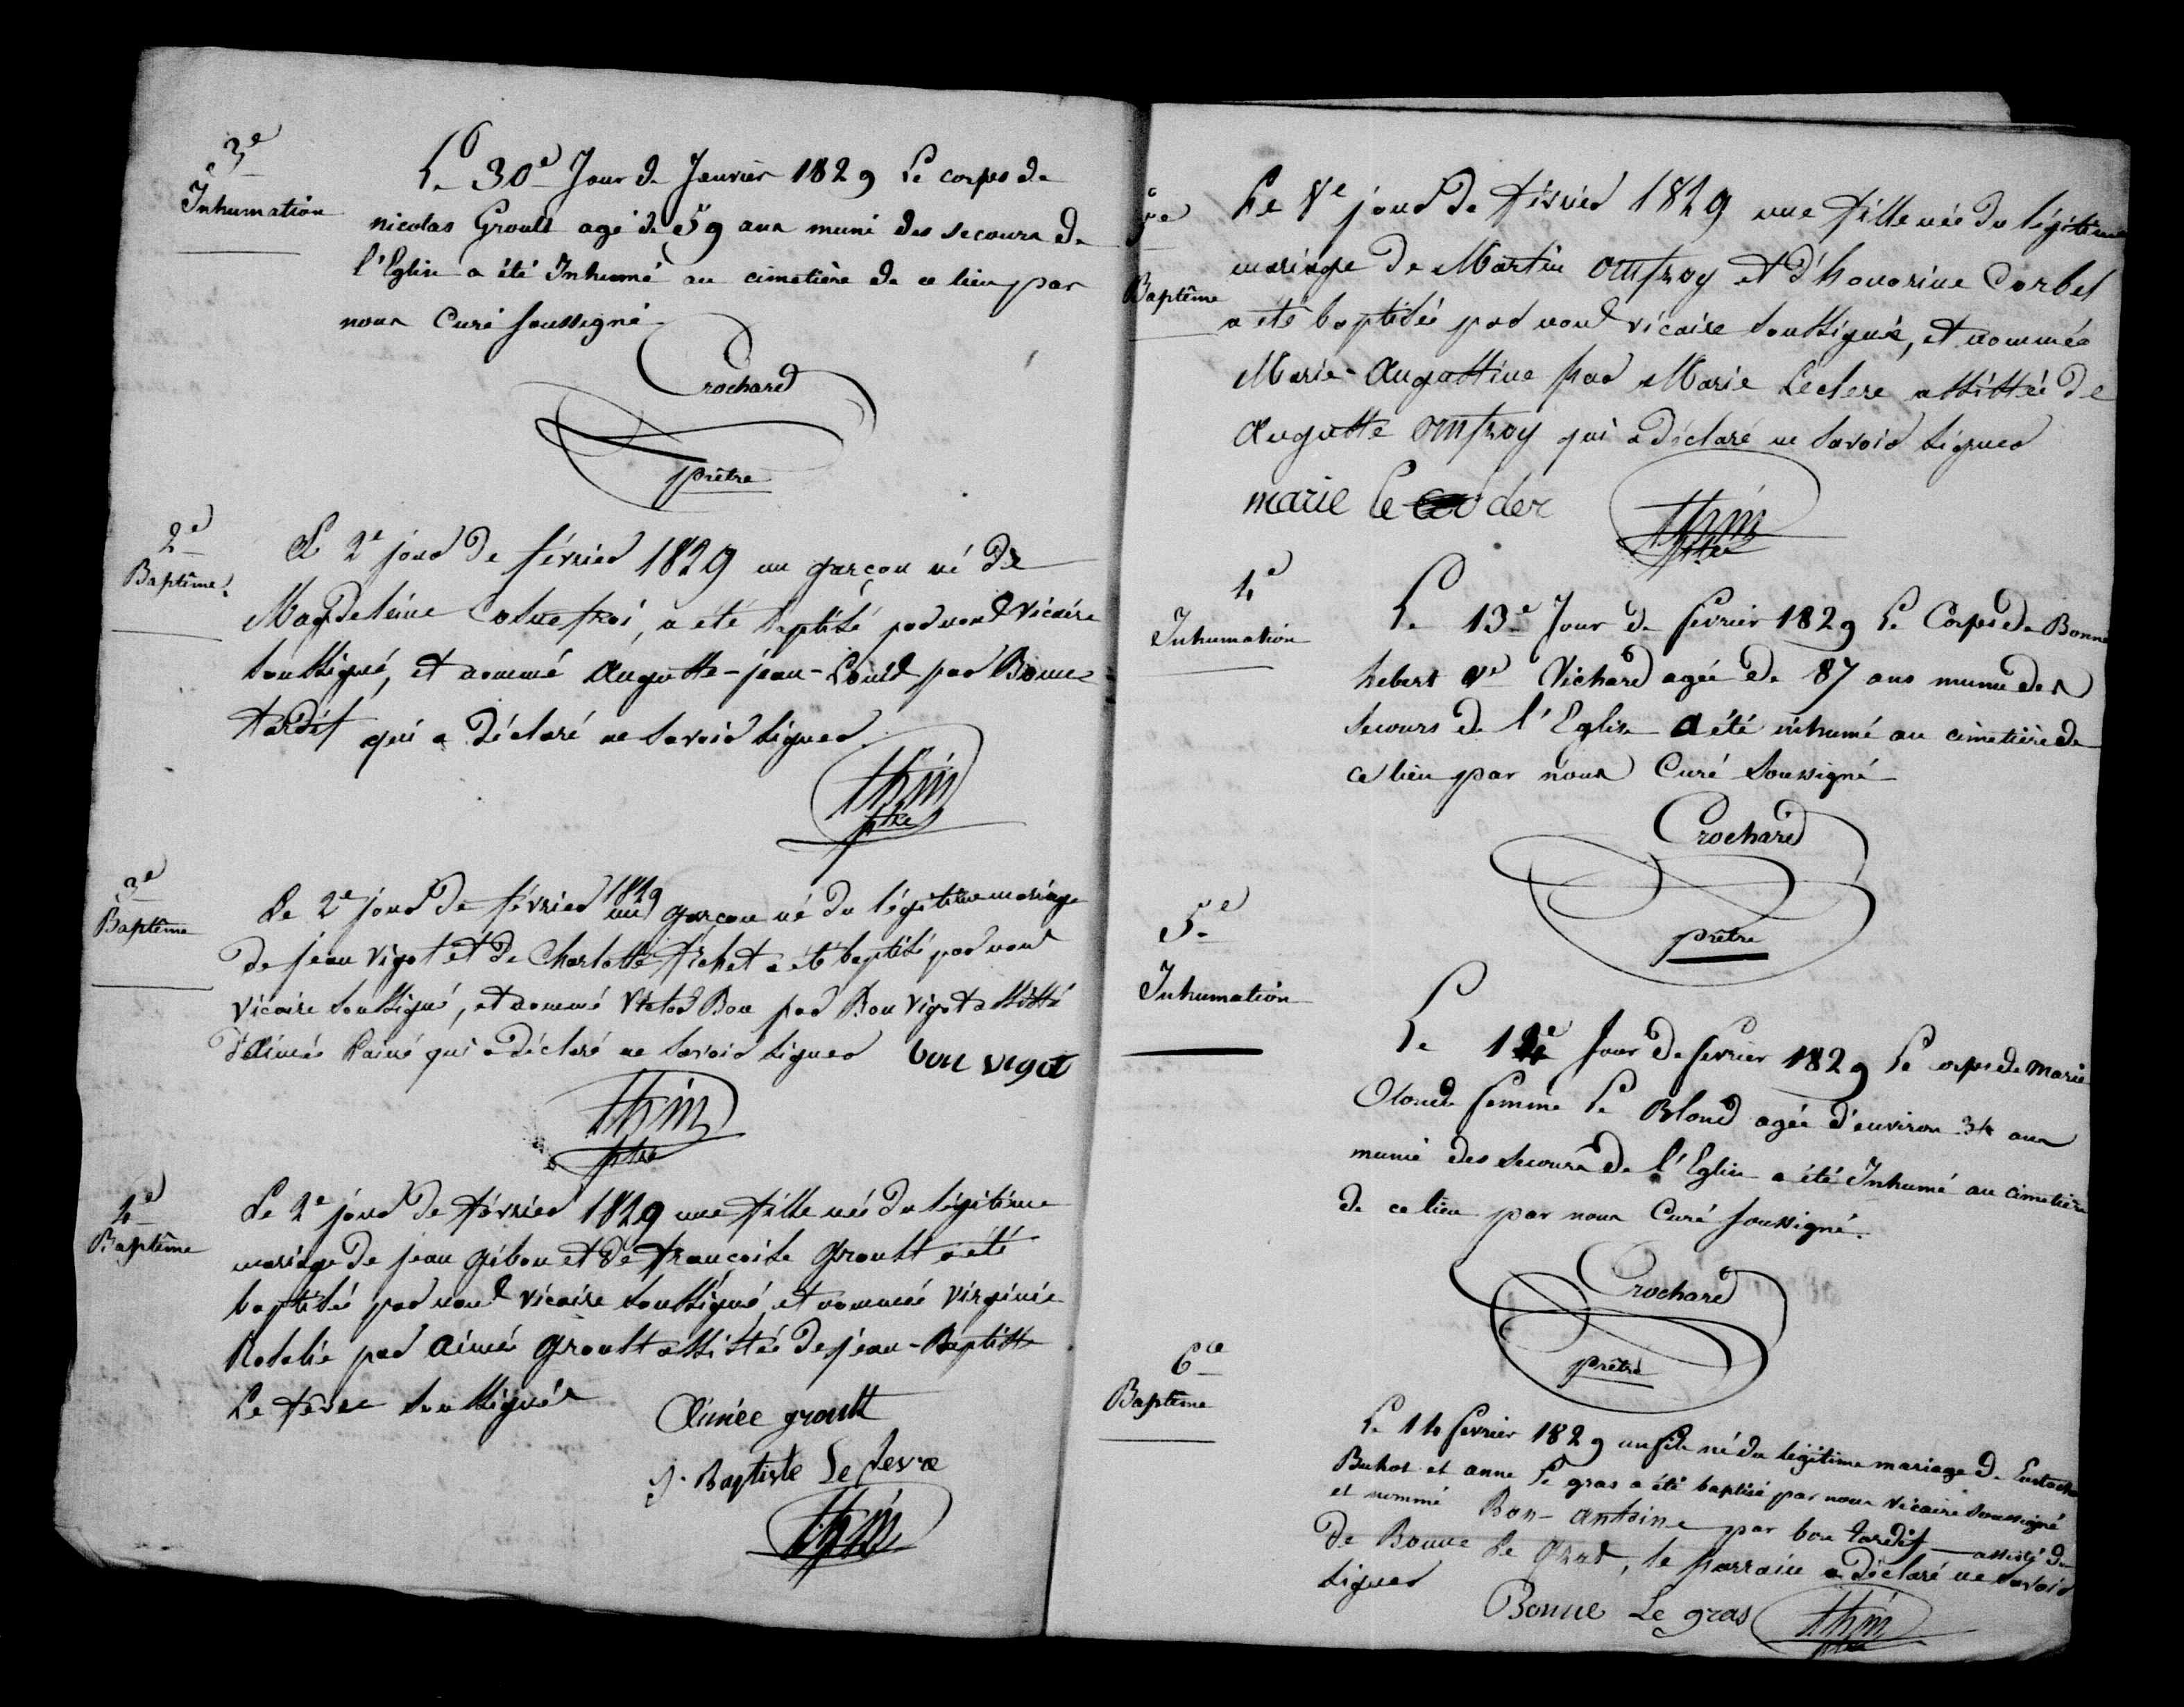 3e
Inhumation
Le 30e Jour de Janvier 1829 Le corps de
nicolas Groult agé de 59 ans muni des secours de
l'Eglise a été Inhumé au cimetière de ce lieu par
nous Curé soussigné
Crochard
prêtre
2e
Baptême
Le 2e jour de février 1829 un garçon né de
Magdeleine a été baptisé par nous vicaire
soussigné, et nommé Auguste-jean-Louis par Bonne
tardif qui a déclaré ne savoir signer
thin
ptre
3e
Baptême
Le 2e jour de février 1829 un garçon né du légitime mariage
de jean vigot et de Charlotte fichet a été baptisé par nous
vicaire soussigné, et nommé Victor Bon par Bon Vigot assisté
d'Aimée qui a déclaré ne savoir signer bon vigot
thin
ptre
4e
Baptême
Le 2e jour de février 1829 une fille née du légitime
mariage de jean gibon et de françoise groult a été
baptisée par nous vicaire soussigné, et nommée virginie
Rosalie par aimée groult assistée de jean-Baptiste
Le fevre soussignés
Aimée groult
j. Baptiste Le fevre
thin
5e
Baptême
Le 8e jour de février 1829 une fille née du légitime
mariage de Martin omfroy et d'honorine Corbet
a été baptisée par nous vicaire soussigné, et nommée
Marie-Augustine par Marie Leclerc assistée de
Auguste omfroy qui a déclaré ne savoir signer
marie le cler
thin
ptre
4e
Inhumation
Le 13e Jour de fevrier 1829 Le Corps de Bonne
hebert ve Vichard agée de 87 ans munie des
secours de l'Eglise a été inhumé au cimetière de
ce lieu par nous Curé Soussigné
Crochard
prêtre
5e
Inhumation
Le 14e Jour de fevrier 1829 Le corps de marie
femme Le Blond agée d'environ 34 ans
munie des secours de l'Eglise a été Inhumé au cimetière
de ce lieu par nous Curé soussigné.
Crochard
prêtre
6e
Baptême
Le 14 fevrier 1829 un fils né du légitime mariage de Eustache
Buhot et anne Le gras a été baptisé par nous vicaire soussigné
et nommé Bon-antoine par bon tardif assisté de
de Bonne Le gras, le parrain a déclaré ne savoir
signer
Bonne Le gras
thin
ptre